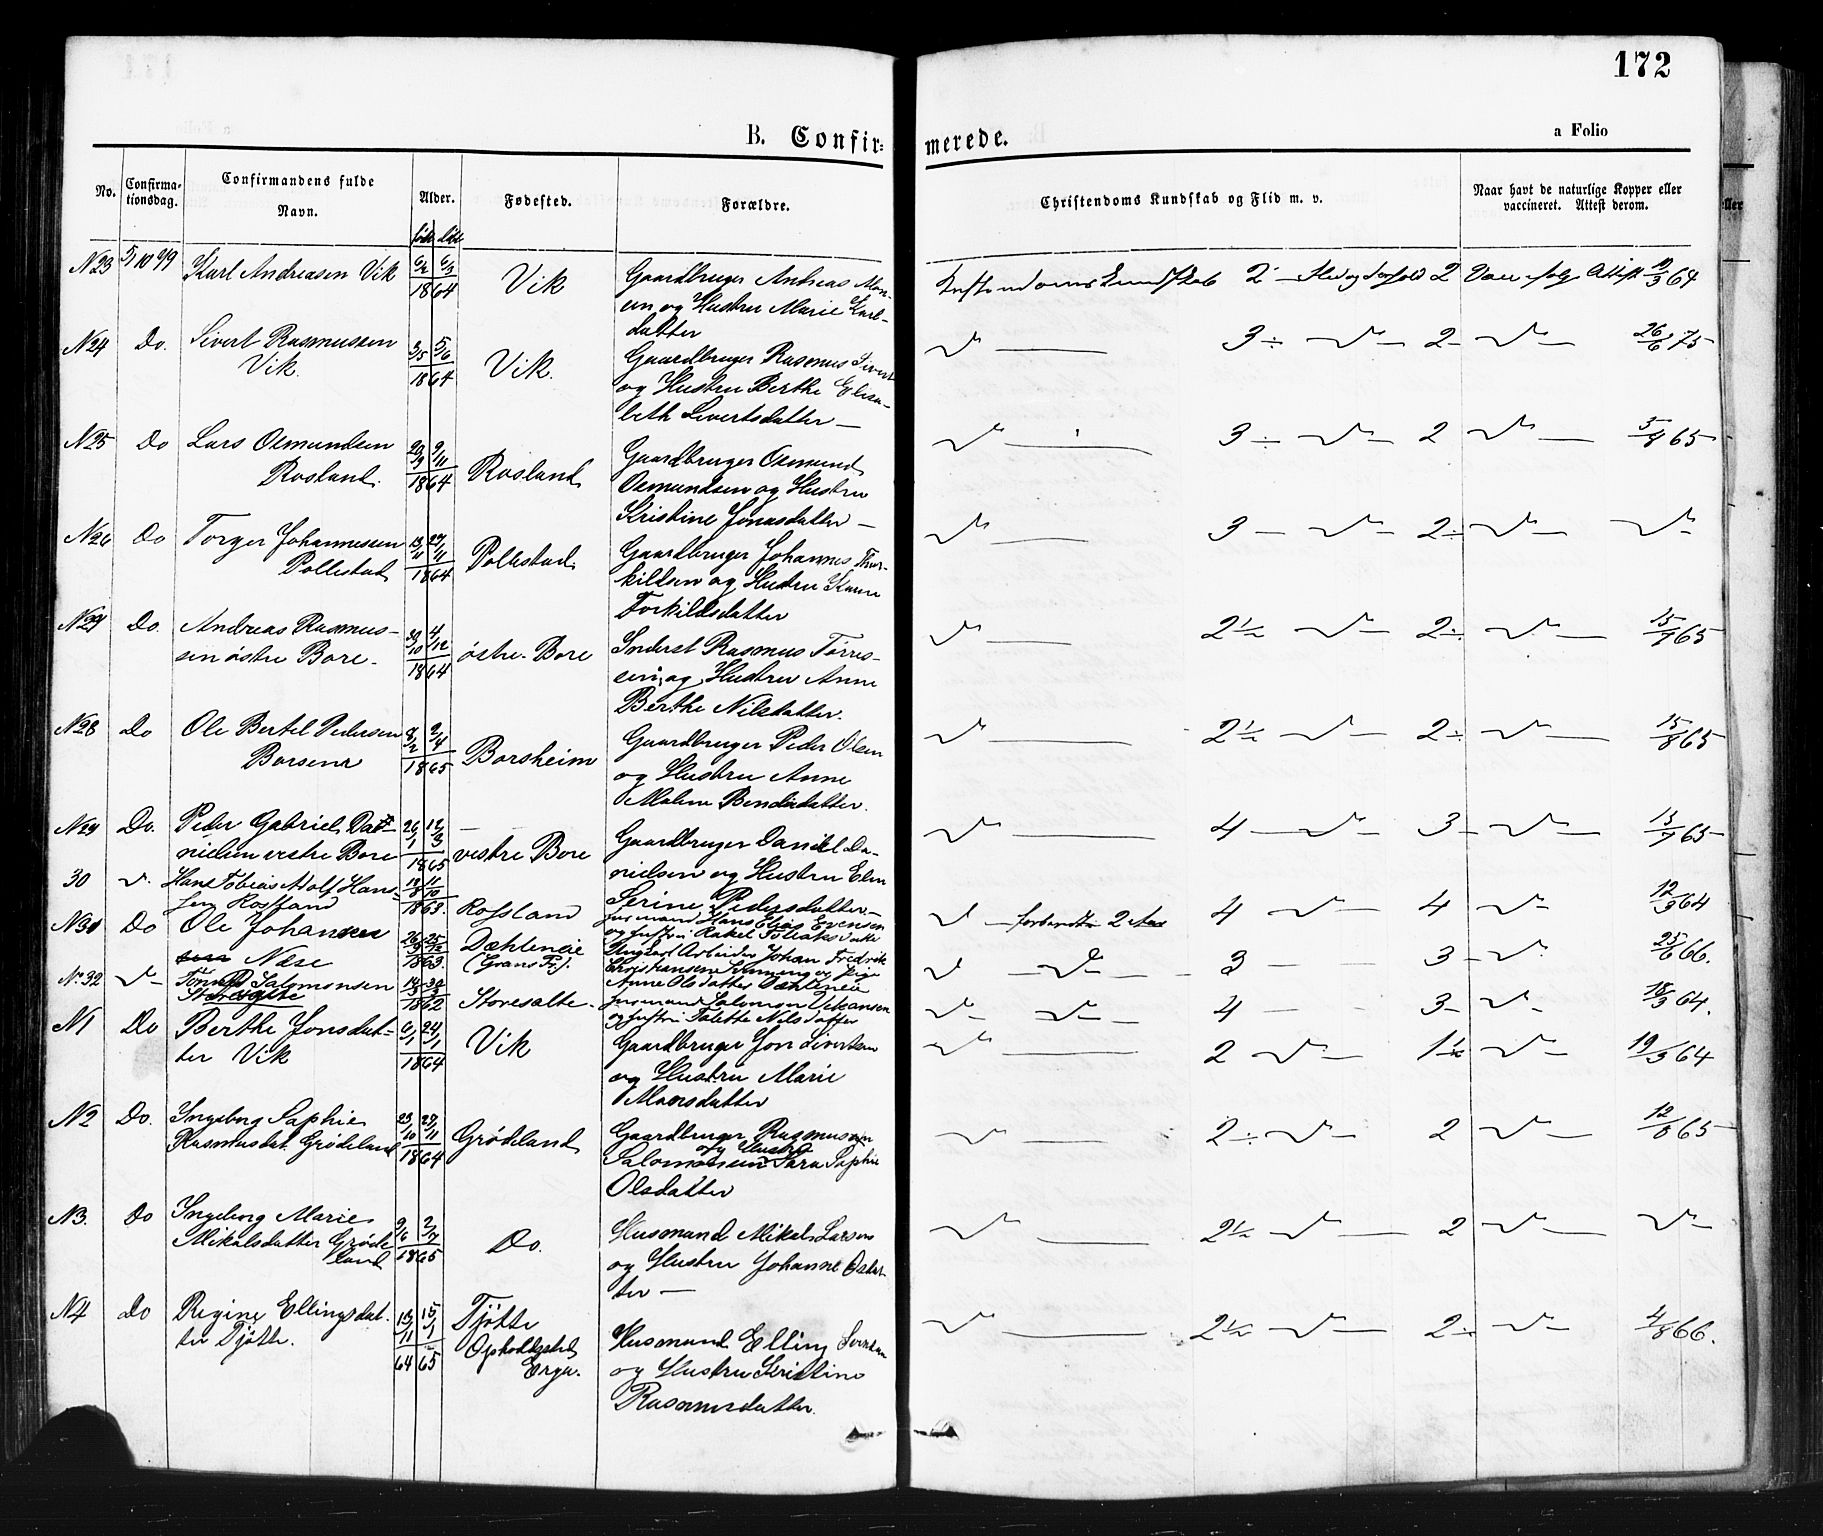 172
B. Confir=
merede.
a Folio
No.
Confirma-
tionsdag.
Confirmandens fulde
Navn.
Alder.
Fødested.
Forældre.
Christendoms Kundskab og Flid m. v.
Naar havt de naturlige Kopper eller
vaccineret. Attest derom.
N23 5/10 79 Karl Andreasen Vik 6/2 6/3 1864 Vik
Gaardbruger Andreas Mon-
sen og Hustru Marie Karl-
datter
Kristendomskundskab 2 - Flid og Forhold 2 Attest 19/3 64
N24 Do. Sivert Rasmussen
Vik. 3/5 5/6 1864 Vik.
Gaardbruger Rasmus Sivert
og Hustru Berthe Elisa-
beth Sivertsdatter —
3 ÷ 2 - 26/6 75
N25 Do Lars Osmundsen
Rosland. 1864 Rosland
Gaardbruger Osmund
Osmundsen og Hustru
Kristine Jonasdatter —
3 ÷ 2 5/8 65
N26 Do Torger Johannessen
Pollestad 13/11 27/11 1864 Pollestad
Gaardbruger Johannes Thor-
kildsen og Hustru
Torkildsdatter
3 - 2 ÷
N27 Do. Andreas Rasmus-
sen østre Bore. 30/10 4/12 1864 østre Bore
Inderst Rasmus Tørres-
sen og Hustru Anne
Berthe Nilsdatter.
2½ 2 ÷ 15/7 65
N28 Do Ole Bertel Pedersen
8/2 2/4 1865 Borsheim
Gaardbruger Peder Olsen
og Hustru Anne
Malene Bendixdatter.
2½ 2 ÷ 15/8 65
N29 Do. Peder Gabriel Da-
nielsen vestre Bore 26/1 12/3 1865 vestre Bore
Gaardbruger Daniel Da-
nielsen og Hustru Elen
Serine Pedersdatter.-
4 — 3 - 13/7 65
30 Hans Tobias Adolf Han-
sen Rossland 1863. Rossland
Husmand Hans Elias Evensen
og Hustru Rakel Tollaksdatter
4 - 4 12/9 64
N31 Do Ole Johansen
Næse 1863. Dæhleneie
(Grans Pr.).
Arbeider Johan Fredrik
Christiansen og Pige
Anne Olsdatter Dæhleneie
3 3 - 25/6 66.
No 32 Tønnes Salomonsen
Storesalte 1862 Storesalte.
Husmand Salomon
og Hustru Talette Nilsdatter
4 - 3 - 18/3 64.
N1 Do Berthe Jonsdat-
ter Vik 6/1 24/1 1864 Vik
Gaardbruger Jon Sivertsen
og Hustru Marie
Monsdatter
2 1½ 19/3 64
N2 Do. Ingeborg Saphie
Rasmusdat. Grødeland 23/10 27/11 1864 Grødeland
Gaardbruger Rasmus
og Hustru
Salomonsen Sara Saphie
Olsdatter
2 ÷ 2 12/8 65
N3. Do Ingeborg Marie
Mikalsdatter Grøde
land 9/6 2/7 1865 Do.
Husmand Mikal Larsen
og Hustru Johanne Olsdat-
ter —
2½ 2
N4 Do Regine Ellingsdat-
ter Tjøtte. 13/11 64 15/1 65 Tjøtte
Opholdssted
Erga.
Husmand Elling Sivertsen
og Hustru Kristine
Rasmusdatter.
2½ 2 ÷ 4/8 66.